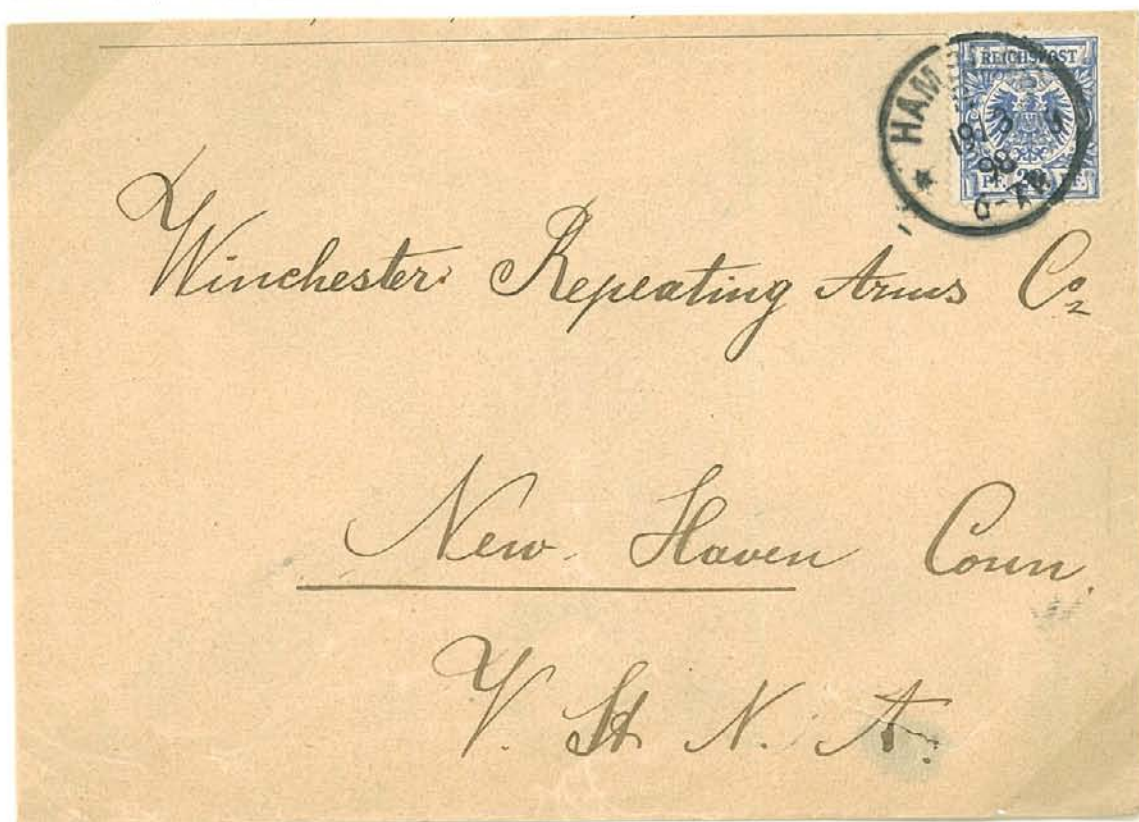 REICHSPOST
HAM
98
PF. 20 PF.
Winchester Repeating Arms Co
New Haven Conn.
V. St. N. A.